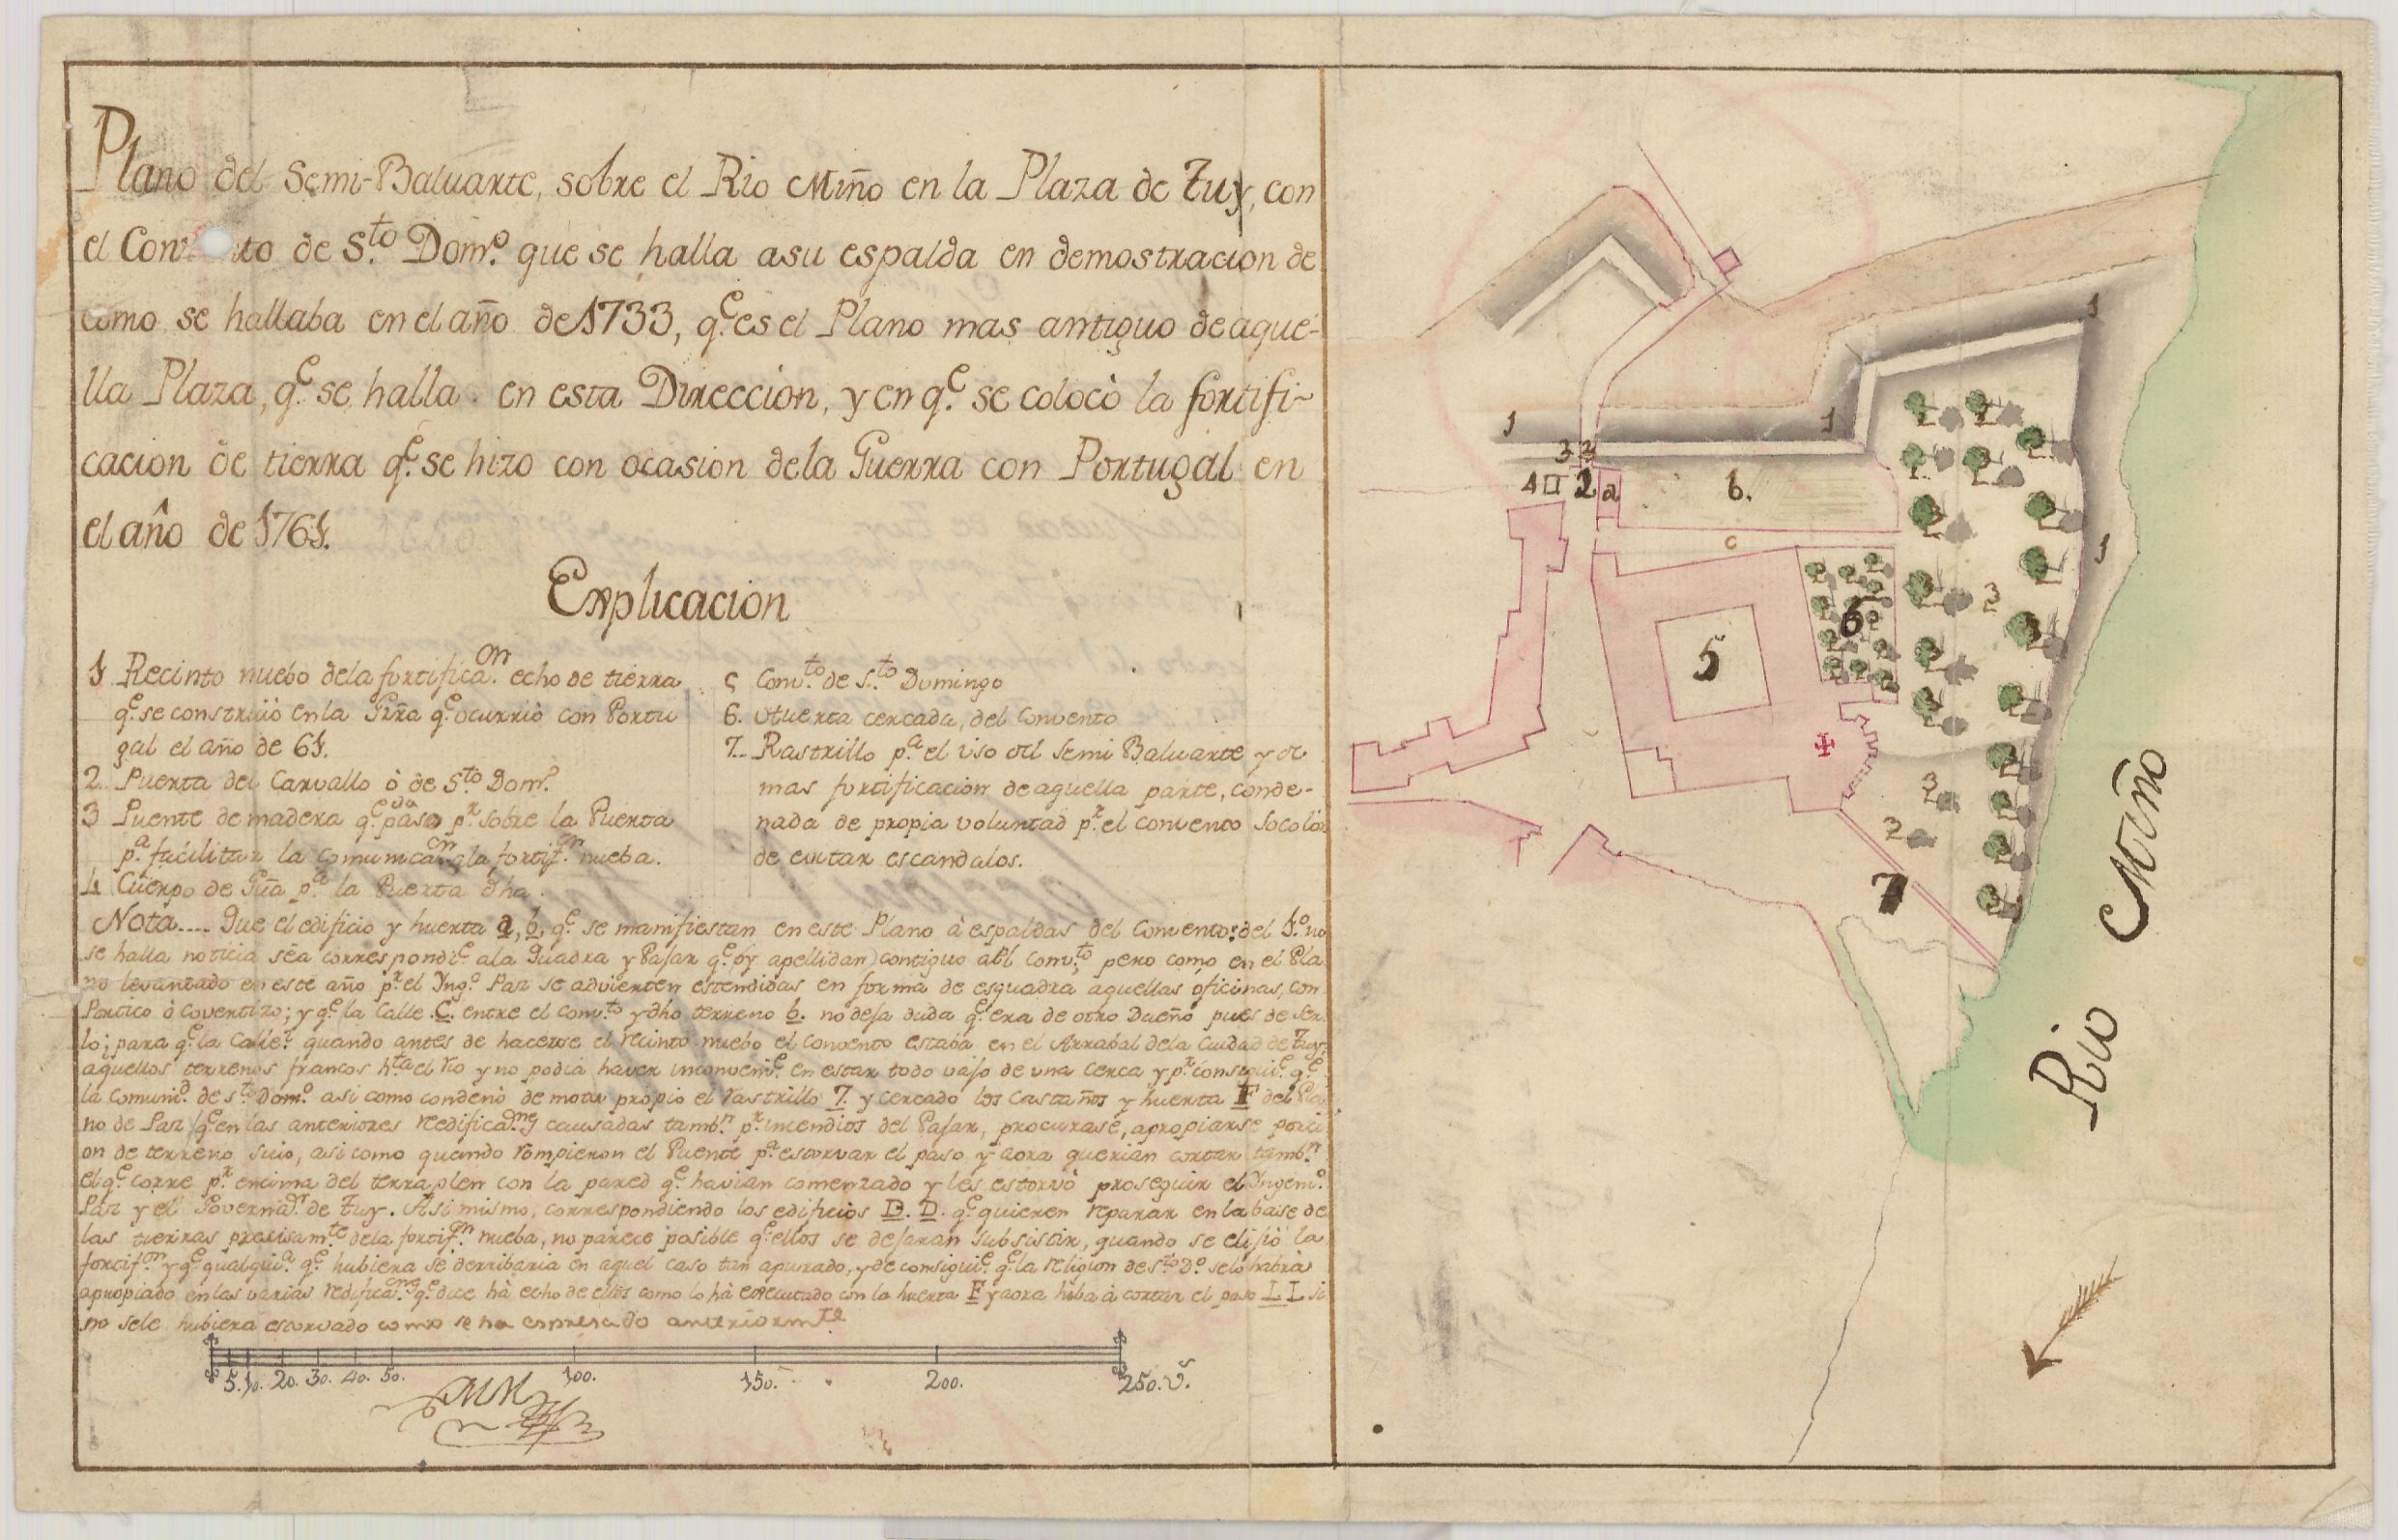 Plano del Semi-Baluarte, sobre el Rio Miño en la Plaza de Tuy, con
el Conv to de S.to Dom.o que se halla asu espalda en demostracion de
como se hallaba en el año de 1733, q.e es el Plano mas antiguo de aque-
lla Plaza, q.e se halla en esta Direccion, y en q.e se colocò la fortifi-
cacion de tierra q.e se hizo con ocasion dela Guerra con Portugal en
el año de 1761.
Explicacion
1 Recinto nuebo dela fortifica.on echo de tierra
q.e se construiò en la Grra q.e ocurriò con Portu
gal el año de 61.
2. Puerta del Carvallo ò de S.to Dom.o
3 Puente de madera q.e da paso p.r sobre la Puerta
p.a facilitar la comunica.on a la fortif.on nueba.
4 Cuerpo de Gũa p.a la Puerta dha.
5 Comv.to de S.to Domingo
6. Huerta cercada, del Convento
7.. Rastrillo p.a el uso del Semi Baluarte y de
mas fortificacion de aquella parte, conde-
nada de propia voluntad p.r el convento socolòr
de evitar escandalos.
Nota.... Que el edificio y huerta a, b, q.e se manifiestan en este Plano à espaldas del Convento: del 1.o no
se halla noticia sèa correspondi.e ala Quadra y Pajar q.e oy apellidan contiguo al Conv.to; pero como en el Pla
no levantado en este año p.r el Yng.o Paz se advierten estendidas en forma de esquadra aquellas oficinas, con
Portico ò Covertizo; y q.e la Calle C. entre el Conv.to y dho terreno b. no deja duda q.e era de otro Dueño pues de ser
lo; para q.e la Calle? quando antes de hacerse el recinto nuebo el convento estaba en el Arrabal dela Ciudad de Tuy,
aquellos terrenos francos h.ta el rio y no podia haver inconveni.e en estar todo vajo de una cerca y p.r consigui.e q.e
la comuni.d de S.to Dom.o asi como condenò de motu propio el rastrillo 7. y cercado los castaños y huerta F del Pla
no de Paz q.e en las anteriores redifica.nes causadas tamb.n p.r incendios del Pajar, procurase, apropiarse porci
on de terreno suio, asi como quando rompieron el Puente p.a estorvar el paso y aora querian cortar tamb.n
el q.e corre p.r encima del terraplen con la pared q.e havian comenzado y les estorvò proseguir el Yngen.o
Paz y el Governad.r de Tuy. Asi mismo, correspondiendo los edificios D. D. q.e quieren reparar en la base de
las tierras precisam.te dela fortif.on nueba, no parece posible q.e ellos se dejaran subsistir, quando se elijiò la
fortif.on y q.e qualqui.a q.e hubiera se derribaria en aquel caso tan apurado, y de consigui.e q.e la religion de S.to D.o selo habrà
apropiado en las varias redifica.nes q.e dice hà echo de ellos como lo hà executado con la huerta F y aora hiba à cortar el paso L L si
no sele hubiera estorvado como se ha expresado anteriorm.te
5. 10. 20. 30. 40. 50. 100. 150. 200. 250. v.s
1
1
1
3 3
4 2 a b.
c
1
5
6
3
3
3
7
Rio Miño